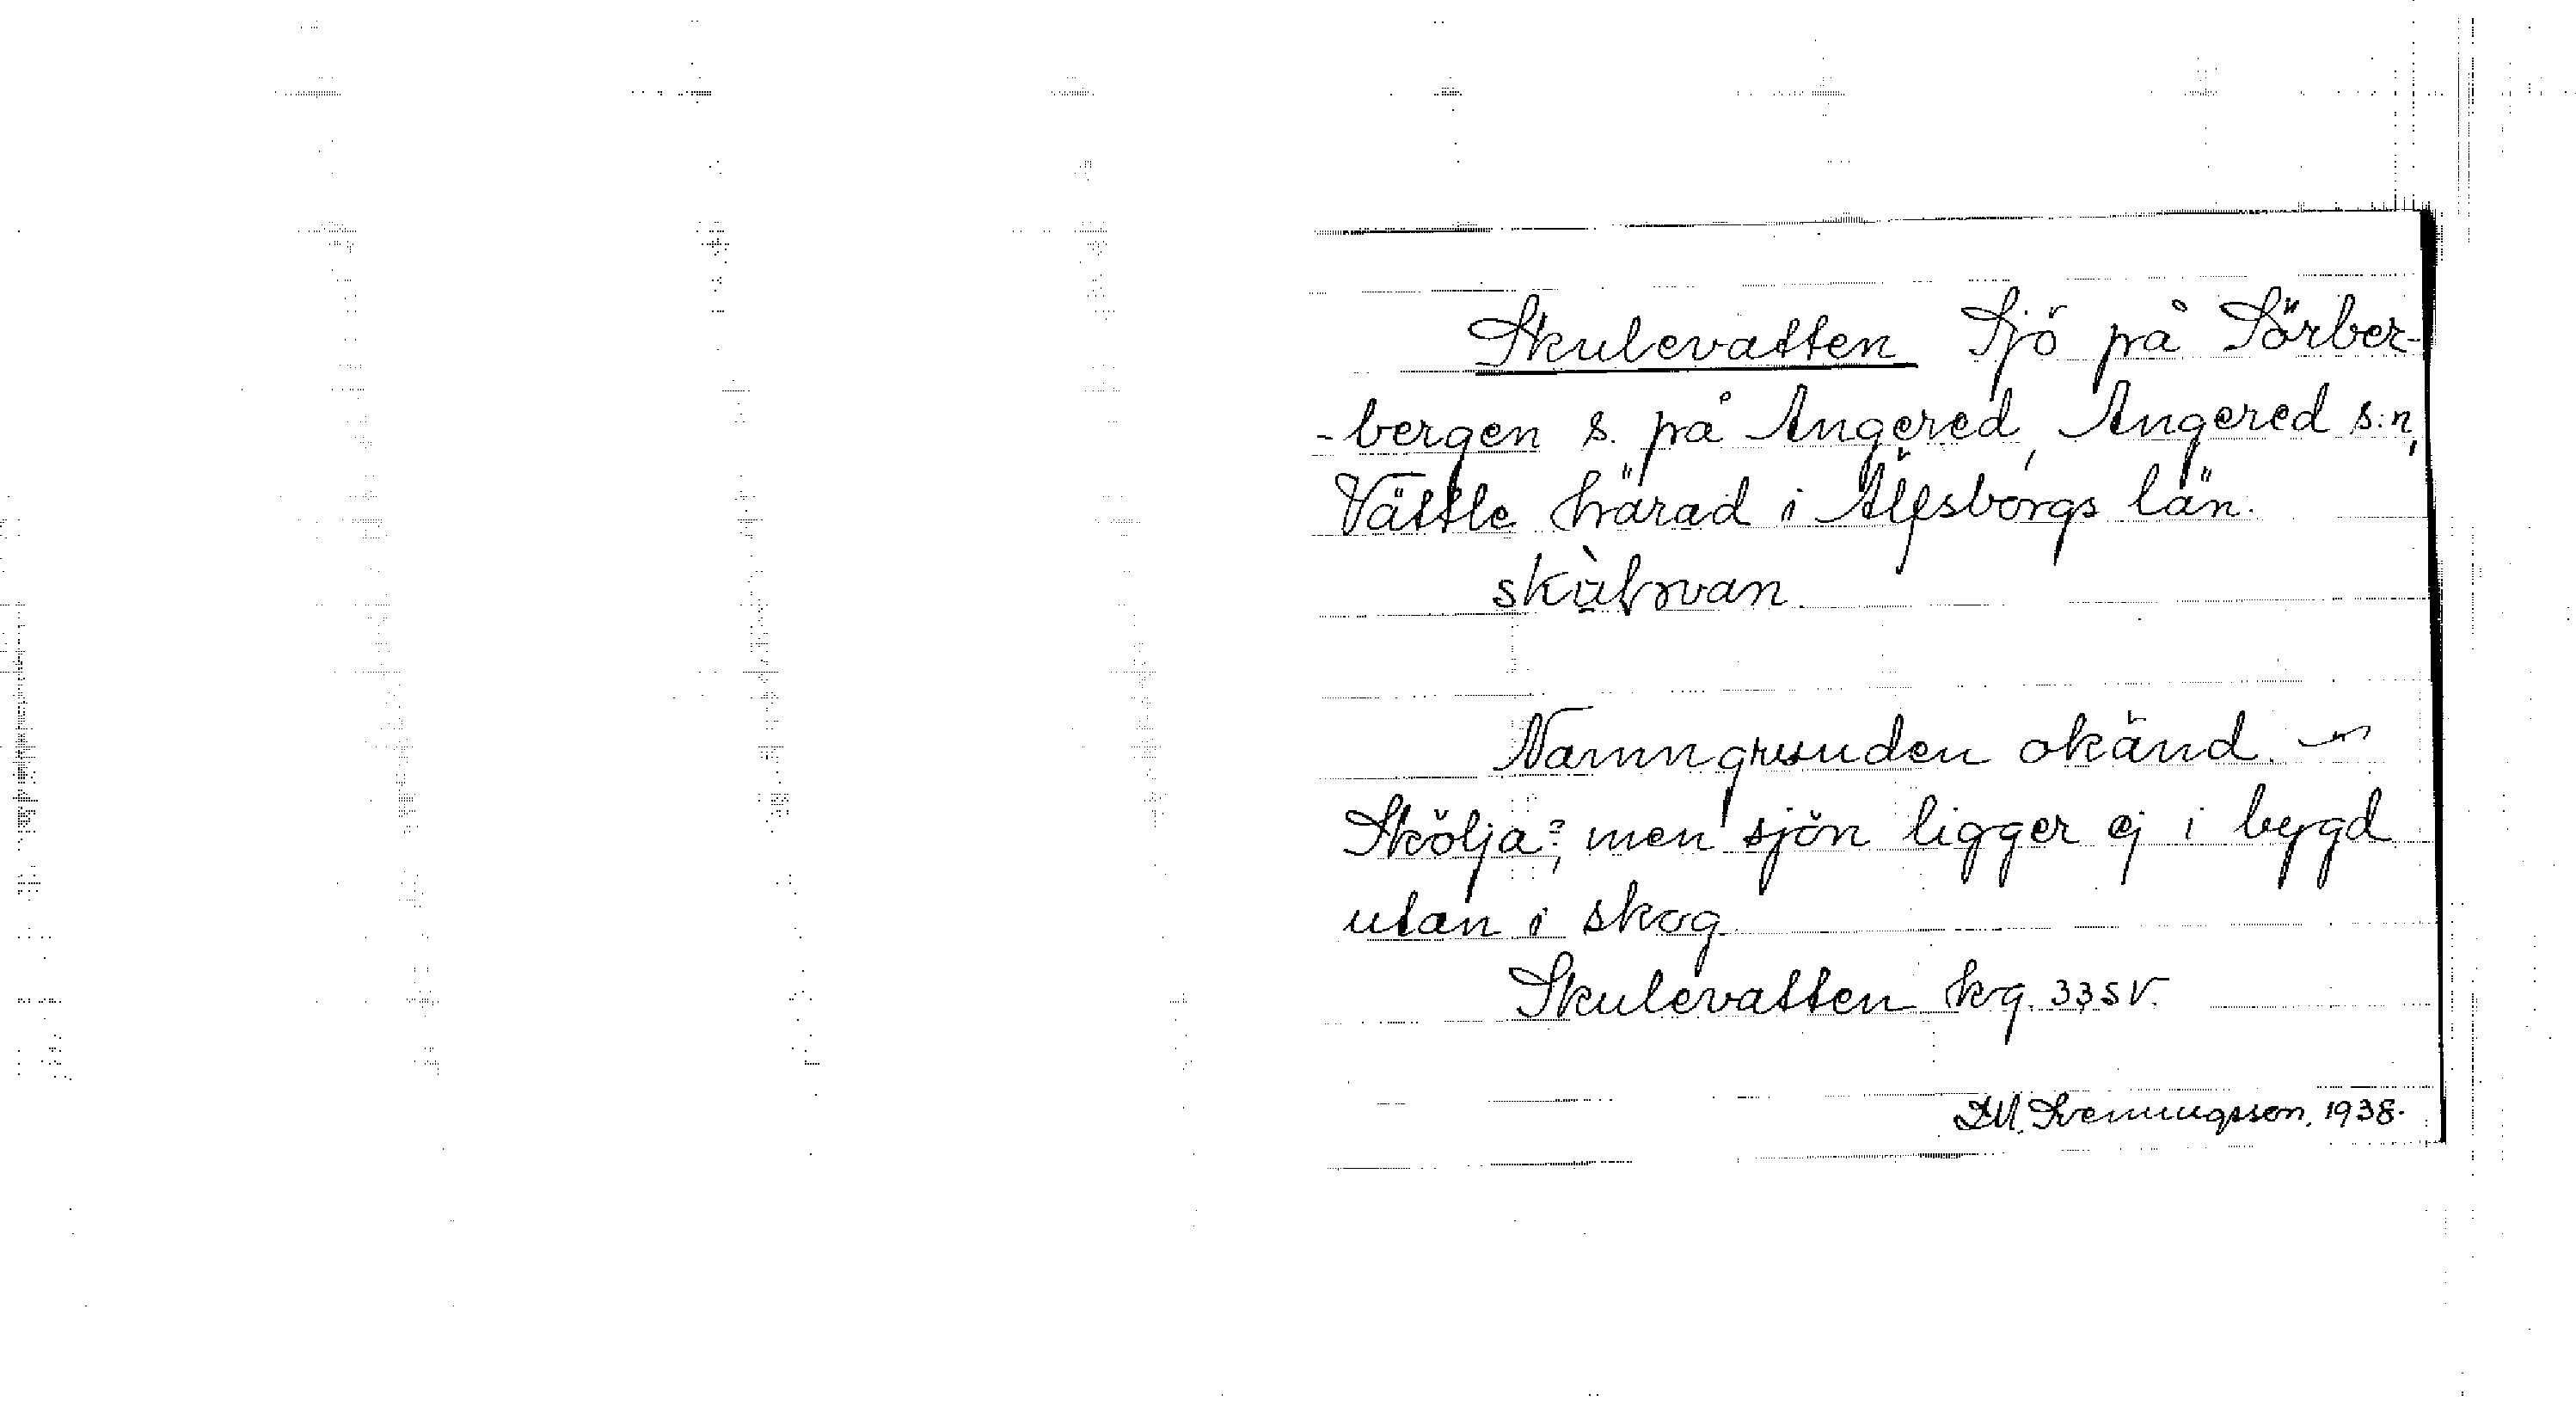 Skulevatten Sjö på Sörber-
-bergen s. på Angered, Angered s:n,
Vättle härad i Älfsborgs län.
Namngrunden okänd.
Skölja?, men sjön ligger ej i bygd
utan i skog
Skulevatten kg. 33 SV.
Svenningsson, 1938.